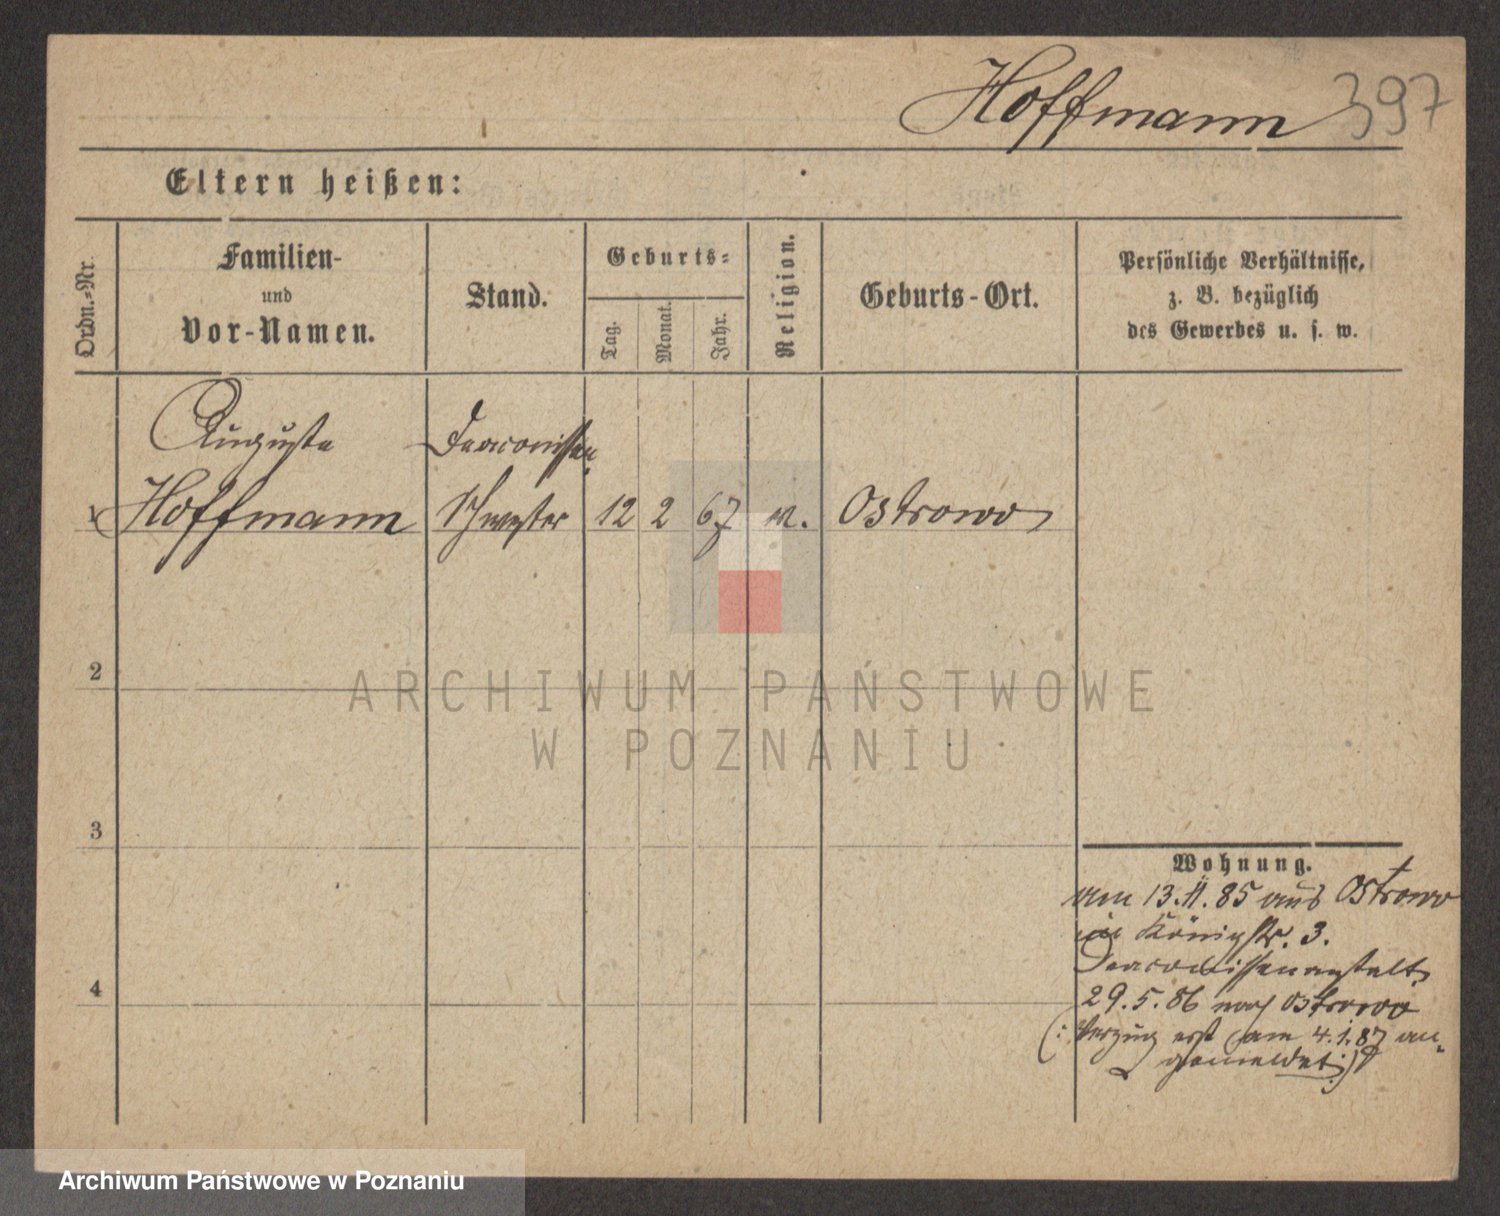 Hoffmann 397
Eltern heißen:
Ordn.-Nr.
Familien-
und
Vor-Namen.
Stand.
Geburts-
Tag.
Monat.
Jahr.
Religion.
Geburts-Ort.
Persönliche Verhältnisse,
z. B. bezüglich
des Gewerbes u. s. w.
Auguste Deaconissen
1 Hoffmann Schwester 12 2 67 Ostrowo
2
3
4
Wohnung.
am 13.11.85 aus Ostrowo
Königstr. 3.
Deaconissenanstalt
29.5.86 nach Ostrowo
(: Verzug erst am 4.1.87 an-
gemeldet :)
ARCHIWUM PAŃSTWOWE
W POZNANIU
Archiwum Państwowe w Poznaniu